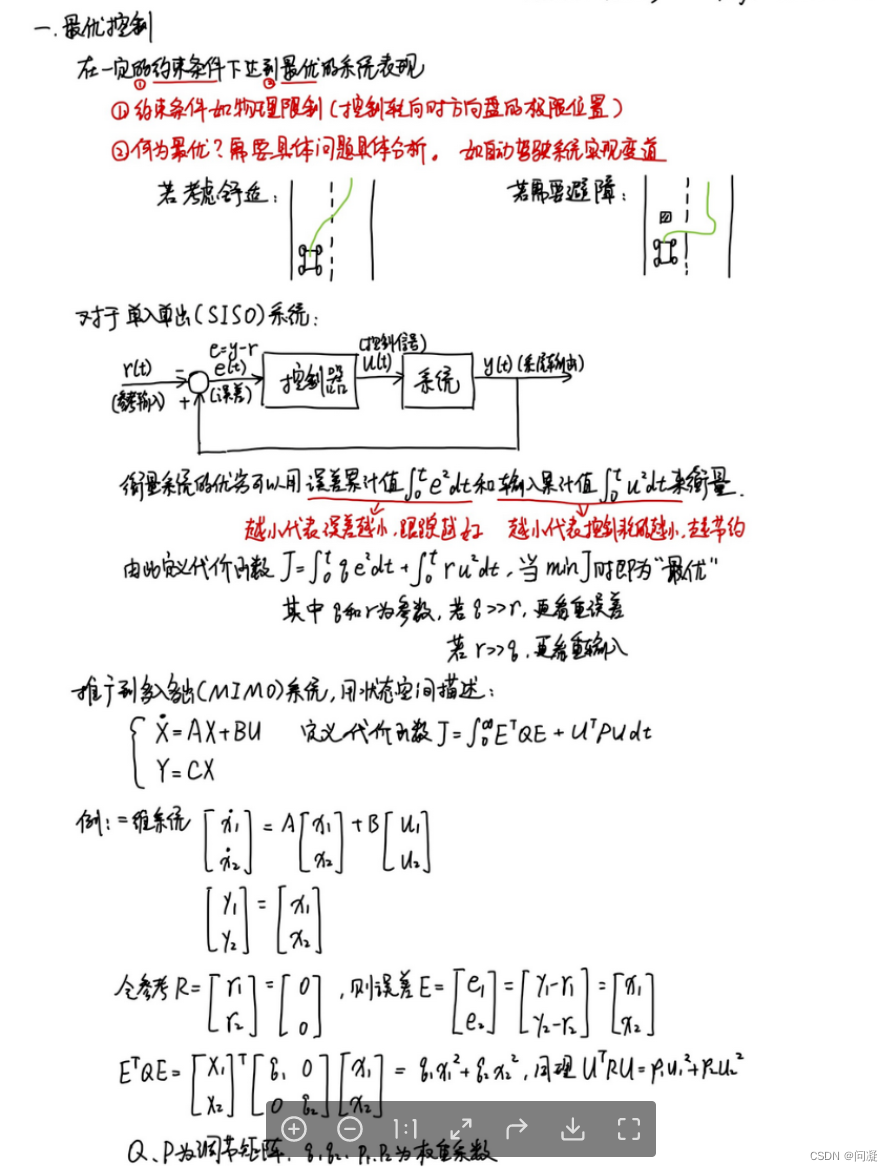 一.最优控制
在一定的约束条件下达到最优的系统表现
① ②
①约束条件如物理限制(控制转向时方向盘的极限位置)
②何为最优?需要具体问题具体分析。如自动驾驶系统实现变道
若考虑舒适: 若需要避障:
对于单入单出(SISO)系统:
e=y-r (控制信号)
r(t) - e(t) 控制器 u(t) 系统 y(t)(系统输出)
(参考输入) + (误差)
衡量系统的优劣可以用误差累计值∫₀ᵗe²dt和输入累计值∫₀ᵗu²dt来衡量.
越小代表误差越小,跟踪越好 越小代表控制消耗越小,越节约
由此定义代价函数 J=∫₀ᵗqe²dt+∫₀ᵗru²dt,当minJ时即为“最优”
其中q和r为参数,若q>>r,更看重误差
若r>>q,更看重输入
推广到多入多出(MIMO)系统,用状态空间描述:
Ẋ=AX+BU 定义代价函数J=∫₀^∞EᵀQE+UᵀPUdt
Y=CX
例:二维系统 [ẋ₁ ẋ₂]=A[x₁ x₂]+B[u₁ u₂]
[y₁ y₂]=[x₁ x₂]
令参考R=[r₁ r₂]=[0 0],则误差E=[e₁ e₂]=[y₁-r₁ y₂-r₂]=[x₁ x₂]
EᵀQE=[x₁ x₂]ᵀ[q₁ 0 0 q₂][x₁ x₂]=q₁x₁²+q₂x₂²,同理UᵀRU=p₁u₁²+p₂u₂²
1:1
Q、P为调节矩阵,q₁q₂、p₁、p₂为权重系数
CSDN @问凝